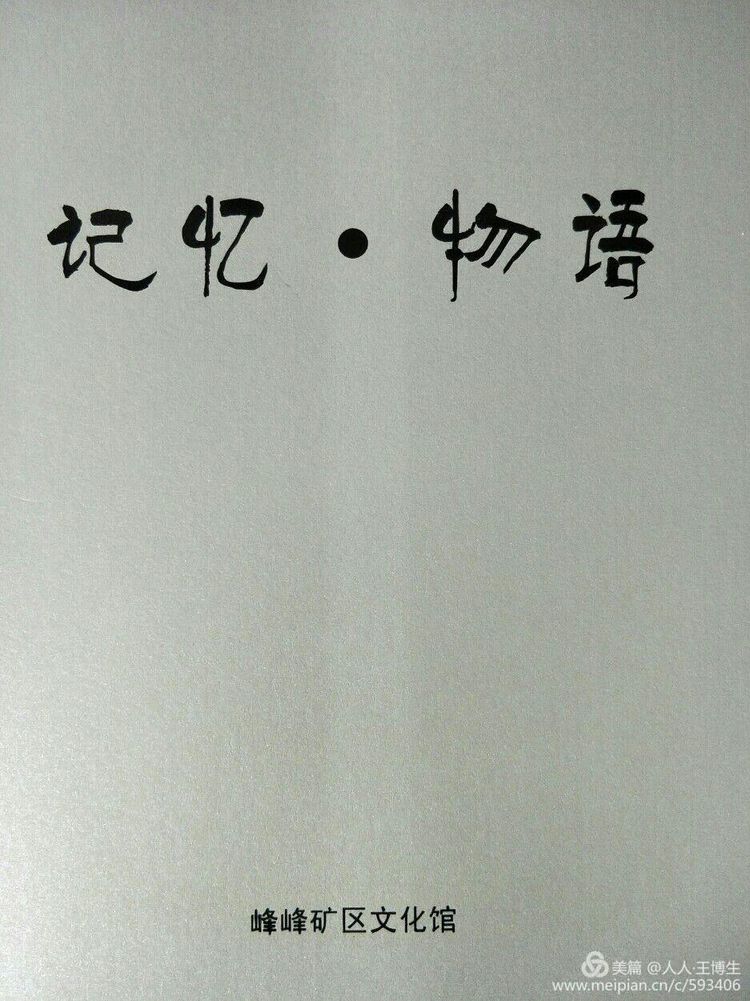 记忆·物语
峰峰矿区文化馆
美篇 @人人·王博生
www.meipian.cn/c/593406